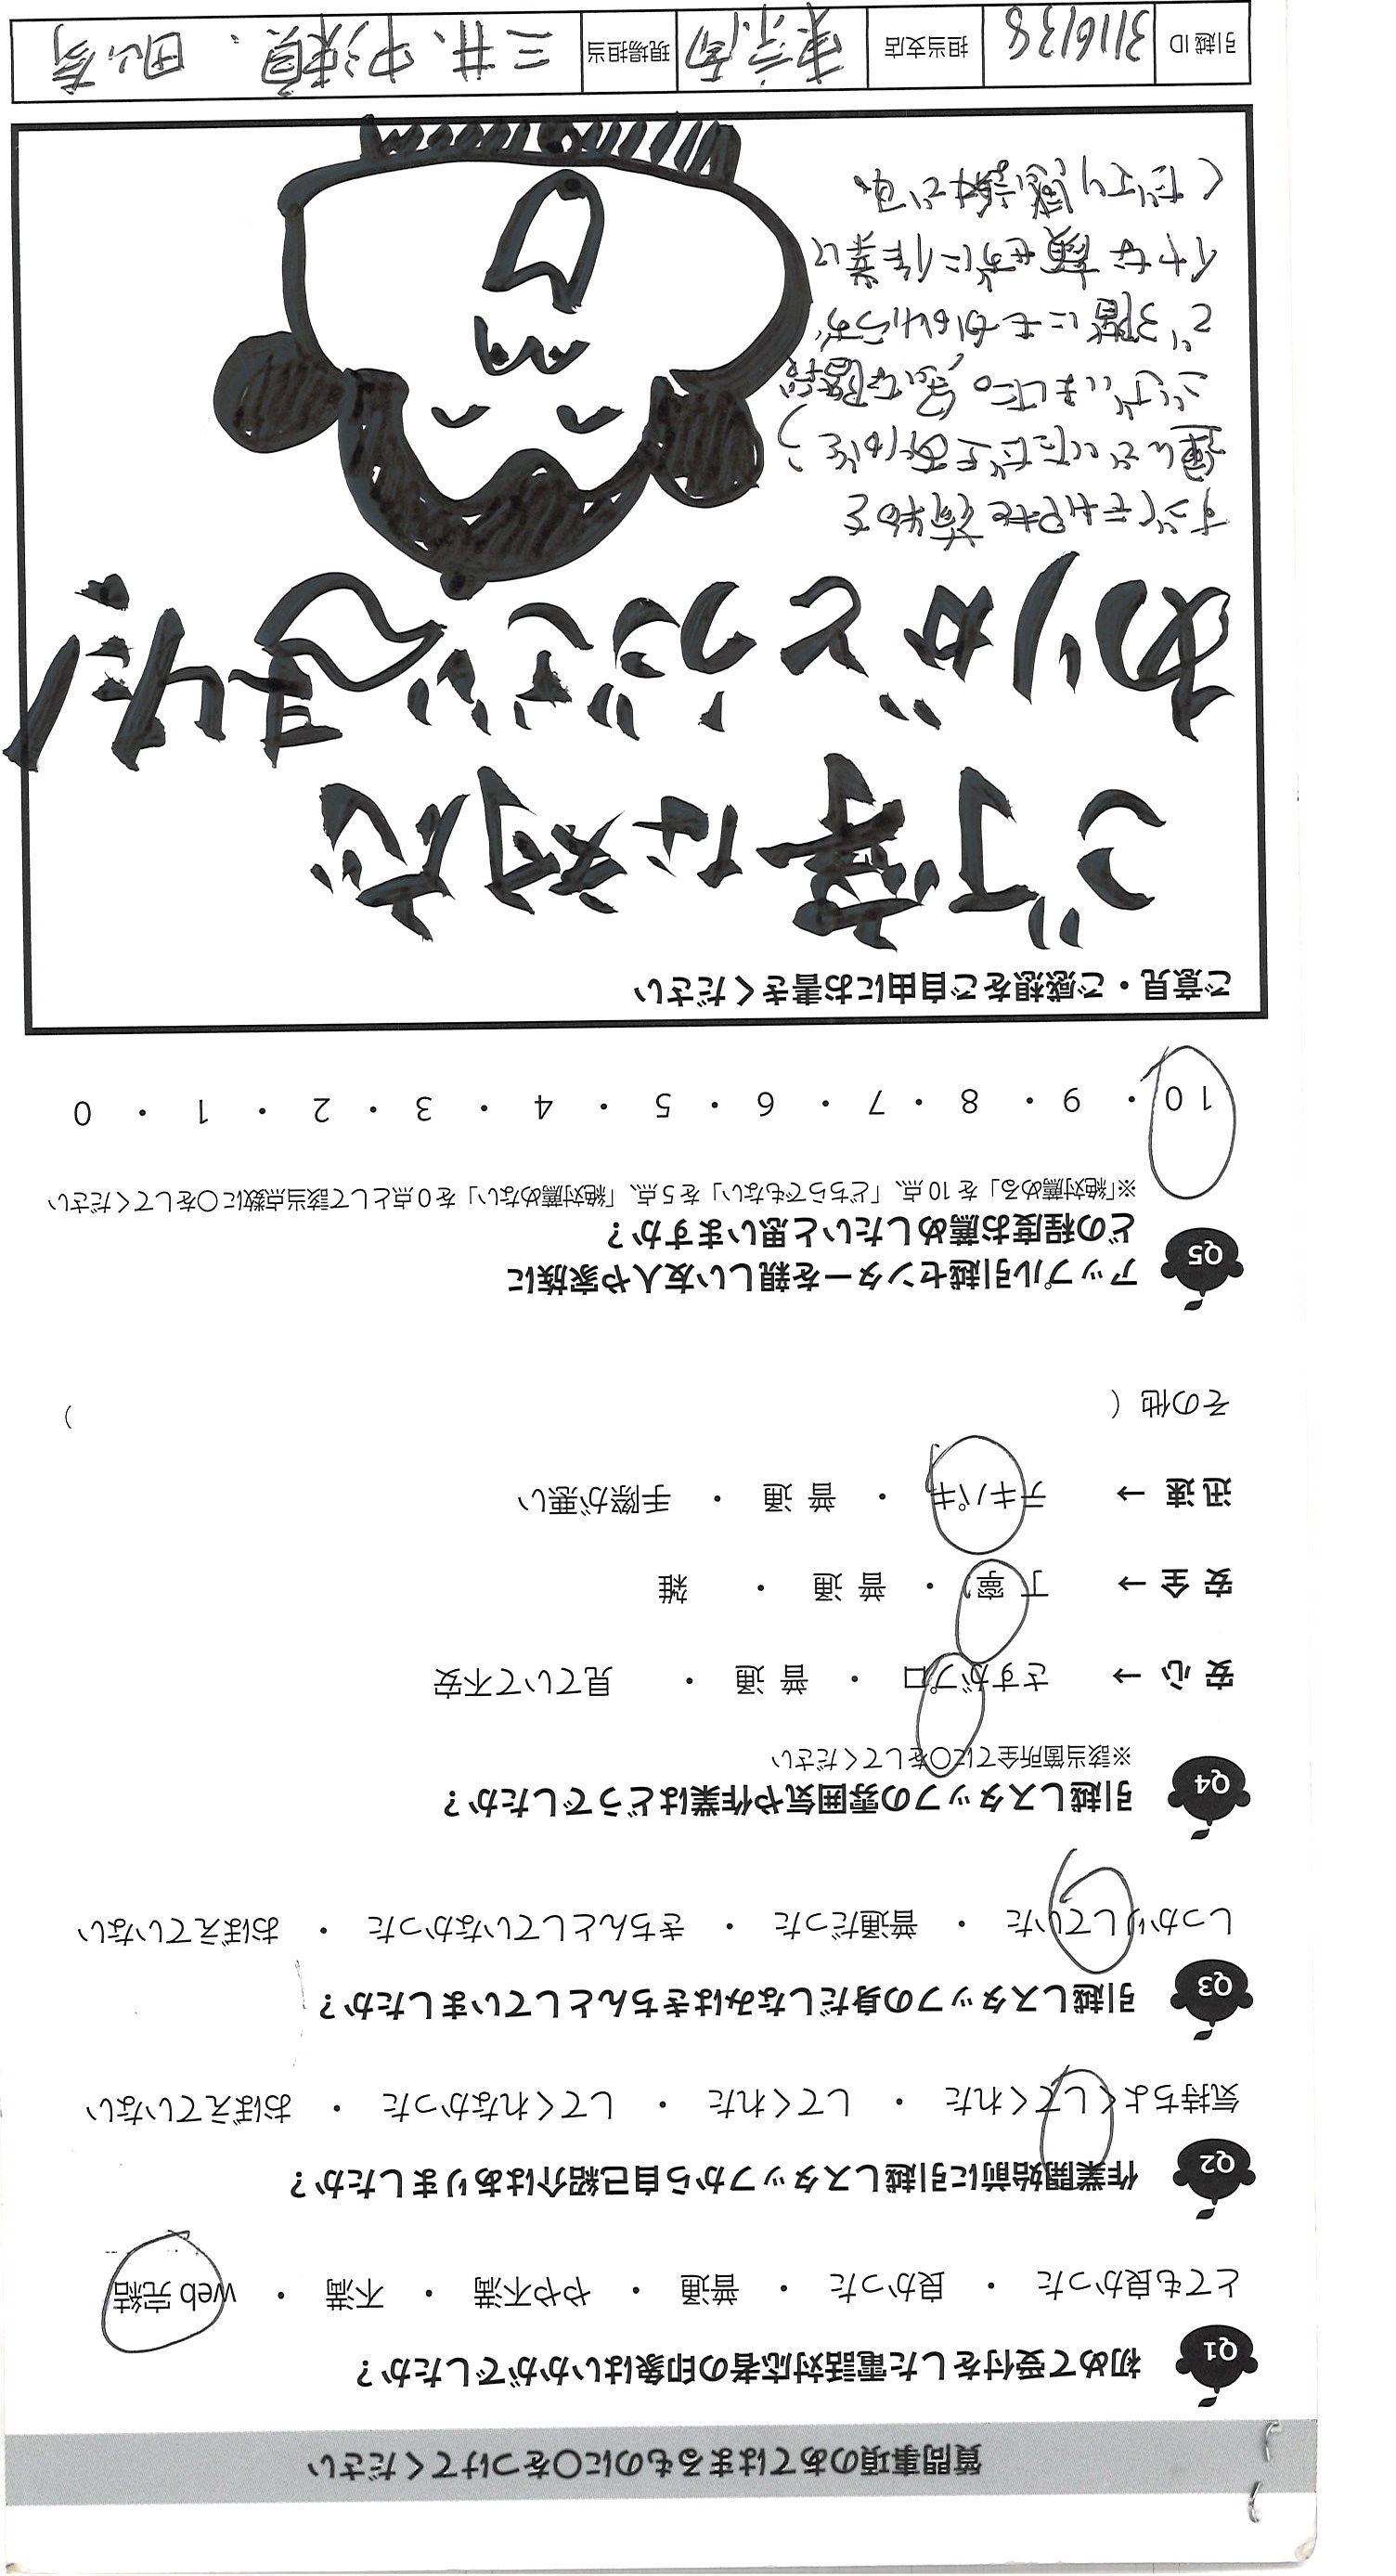 質問事項のあてはまるものに○をつけてください
Q1 初めて受付をした電話対応者の印象はいかがでしたか？
とても良かった ・ 良かった ・ 普通 ・ やや不満 ・ 不満 ・ web 完結
Q2 作業開始前に引越しスタッフから自己紹介はありましたか？
気持ちよくしてくれた ・ してくれた ・ してくれなかった ・ おぼえていない
Q3 引越しスタッフの身だしなみはきちんとしていましたか？
しっかりしていた ・ 普通だった ・ きちんとしていなかった ・ おぼえていない
Q4 引越しスタッフの雰囲気や作業はどうでしたか？
※該当箇所全てに○をしてください
安 心 → さすがプロ ・ 普 通 ・ 見ていて不安
安 全 → 丁 寧 ・ 普 通 ・ 雑
迅 速 → テキパキ ・ 普 通 ・ 手際が悪い
その他（ ）
Q5 アップル引越センターを親しい友人や家族に
どの程度お薦めしたいと思いますか？
※「絶対薦める」を 10 点、「どちらでもない」を 5 点、「絶対薦めない」を 0 点として該当点数に○をしてください
10 ・ 9 ・ 8 ・ 7 ・ 6 ・ 5 ・ 4 ・ 3 ・ 2 ・ 1 ・ 0
ご意見・ご感想をご自由にお書きください
ご丁寧な対応
ありがとうございました!
すごくすばやく荷物を
運んでいただき
ございました。急な階段
で3階にもかかわらず、
イヤな顔せずに作業して
くださり感謝です。
引越 ID 3116138 担当支店 東京南 現場担当 三井、中瀬